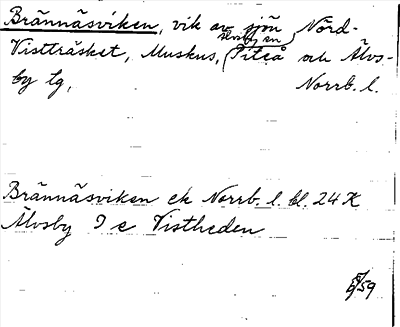 Brännäsviken, vik av sjön Nord-
Älvsby sn
Vistträsket, Muskus, (Piteå och Älvs-
by tg, Norrb. l.
Brännäsviken ek Norrb. l. bl. 24 X
Älvsby 9 e Vistheden
59